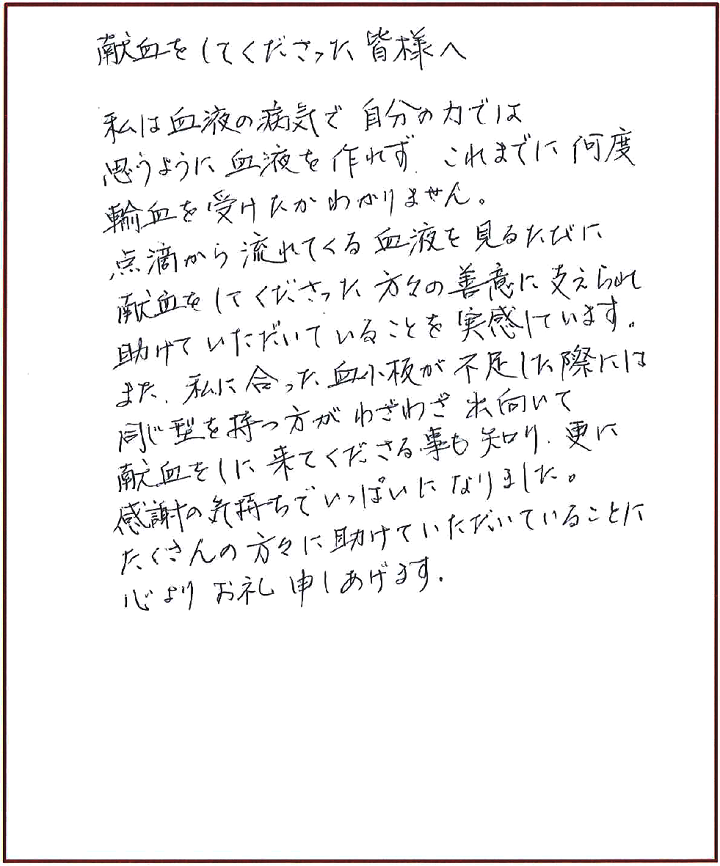 献血をしてくださった皆様へ
私は血液の病気で自分の力では
思うように血液を作れず、これまでに何度
輸血を受けたかわかりません。
点滴から流れてくる血液を見るたびに
献血をしてくださった方々の善意に支えられ
助けていただいていることを実感しています。
また、私に合った血小板が不足した際には
同じ型を持つ方がわざわざ出向いて
献血をしに来てくださる事も知り、更に
感謝の気持ちでいっぱいになりました。
たくさんの方々に助けていただいていることに
心よりお礼申しあげます。